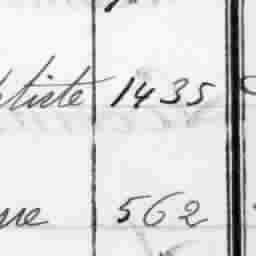 ptiste 1435
ne 562